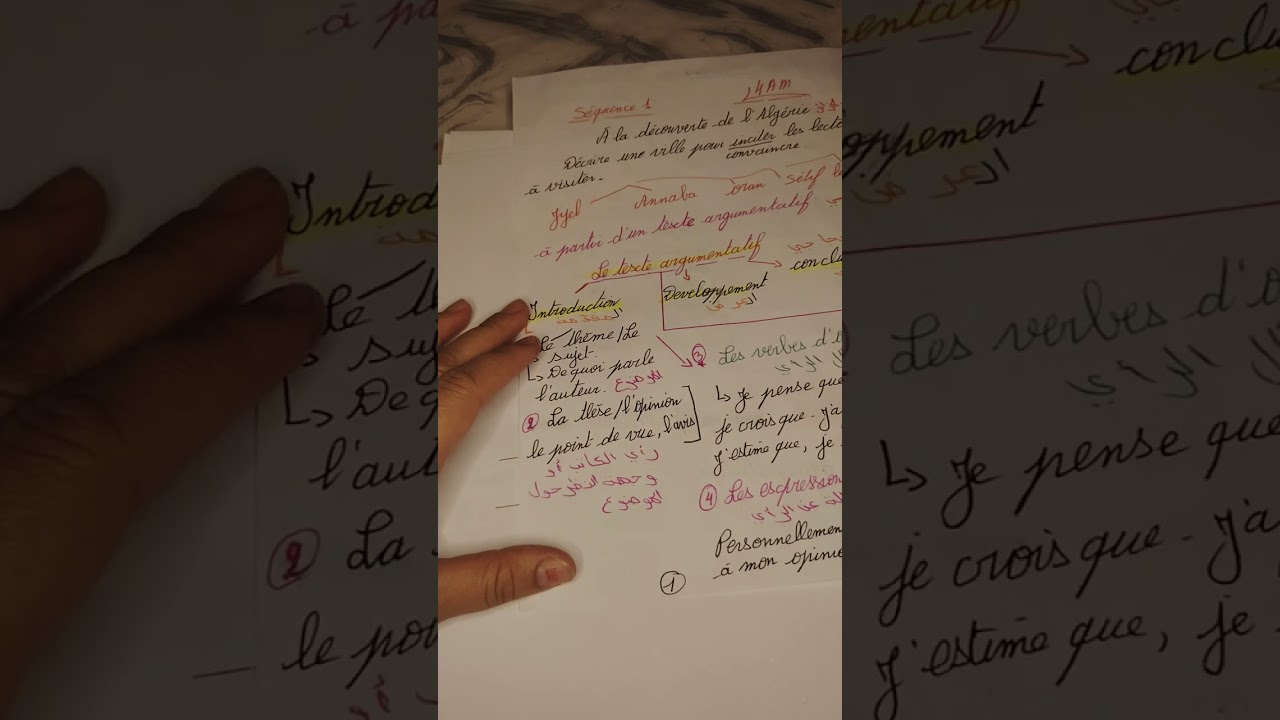 Séquence 1
4AM
À la découverte de l'Algérie
Décrire une ville pour inciter les
convaincre
à visiter.
Jijel Annaba Oran Sétif
à partir d'un texte argumentatif
Le texte argumentatif
Introduction
المقدمة
Developpement
العرض
Le thème/Le
sujet.
↳ De quoi parle
l'auteur. الموضوع
② La thèse/l'opinion
le point de vue, l'avis
رأي الكاتب أو
وجهة النظر حول
الموضوع
③ Les verbes d'
الرأي
↳ Je pense que
je crois que
J'estime que, je
④ Les expression
عن الرأي
Personnellemen
à mon opinio
①